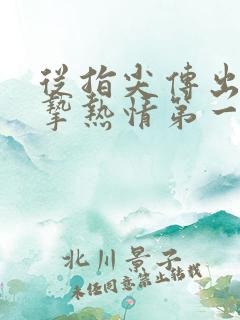 從指尖傳出
摯熱情第一
北川景子
未經同意禁止轉載